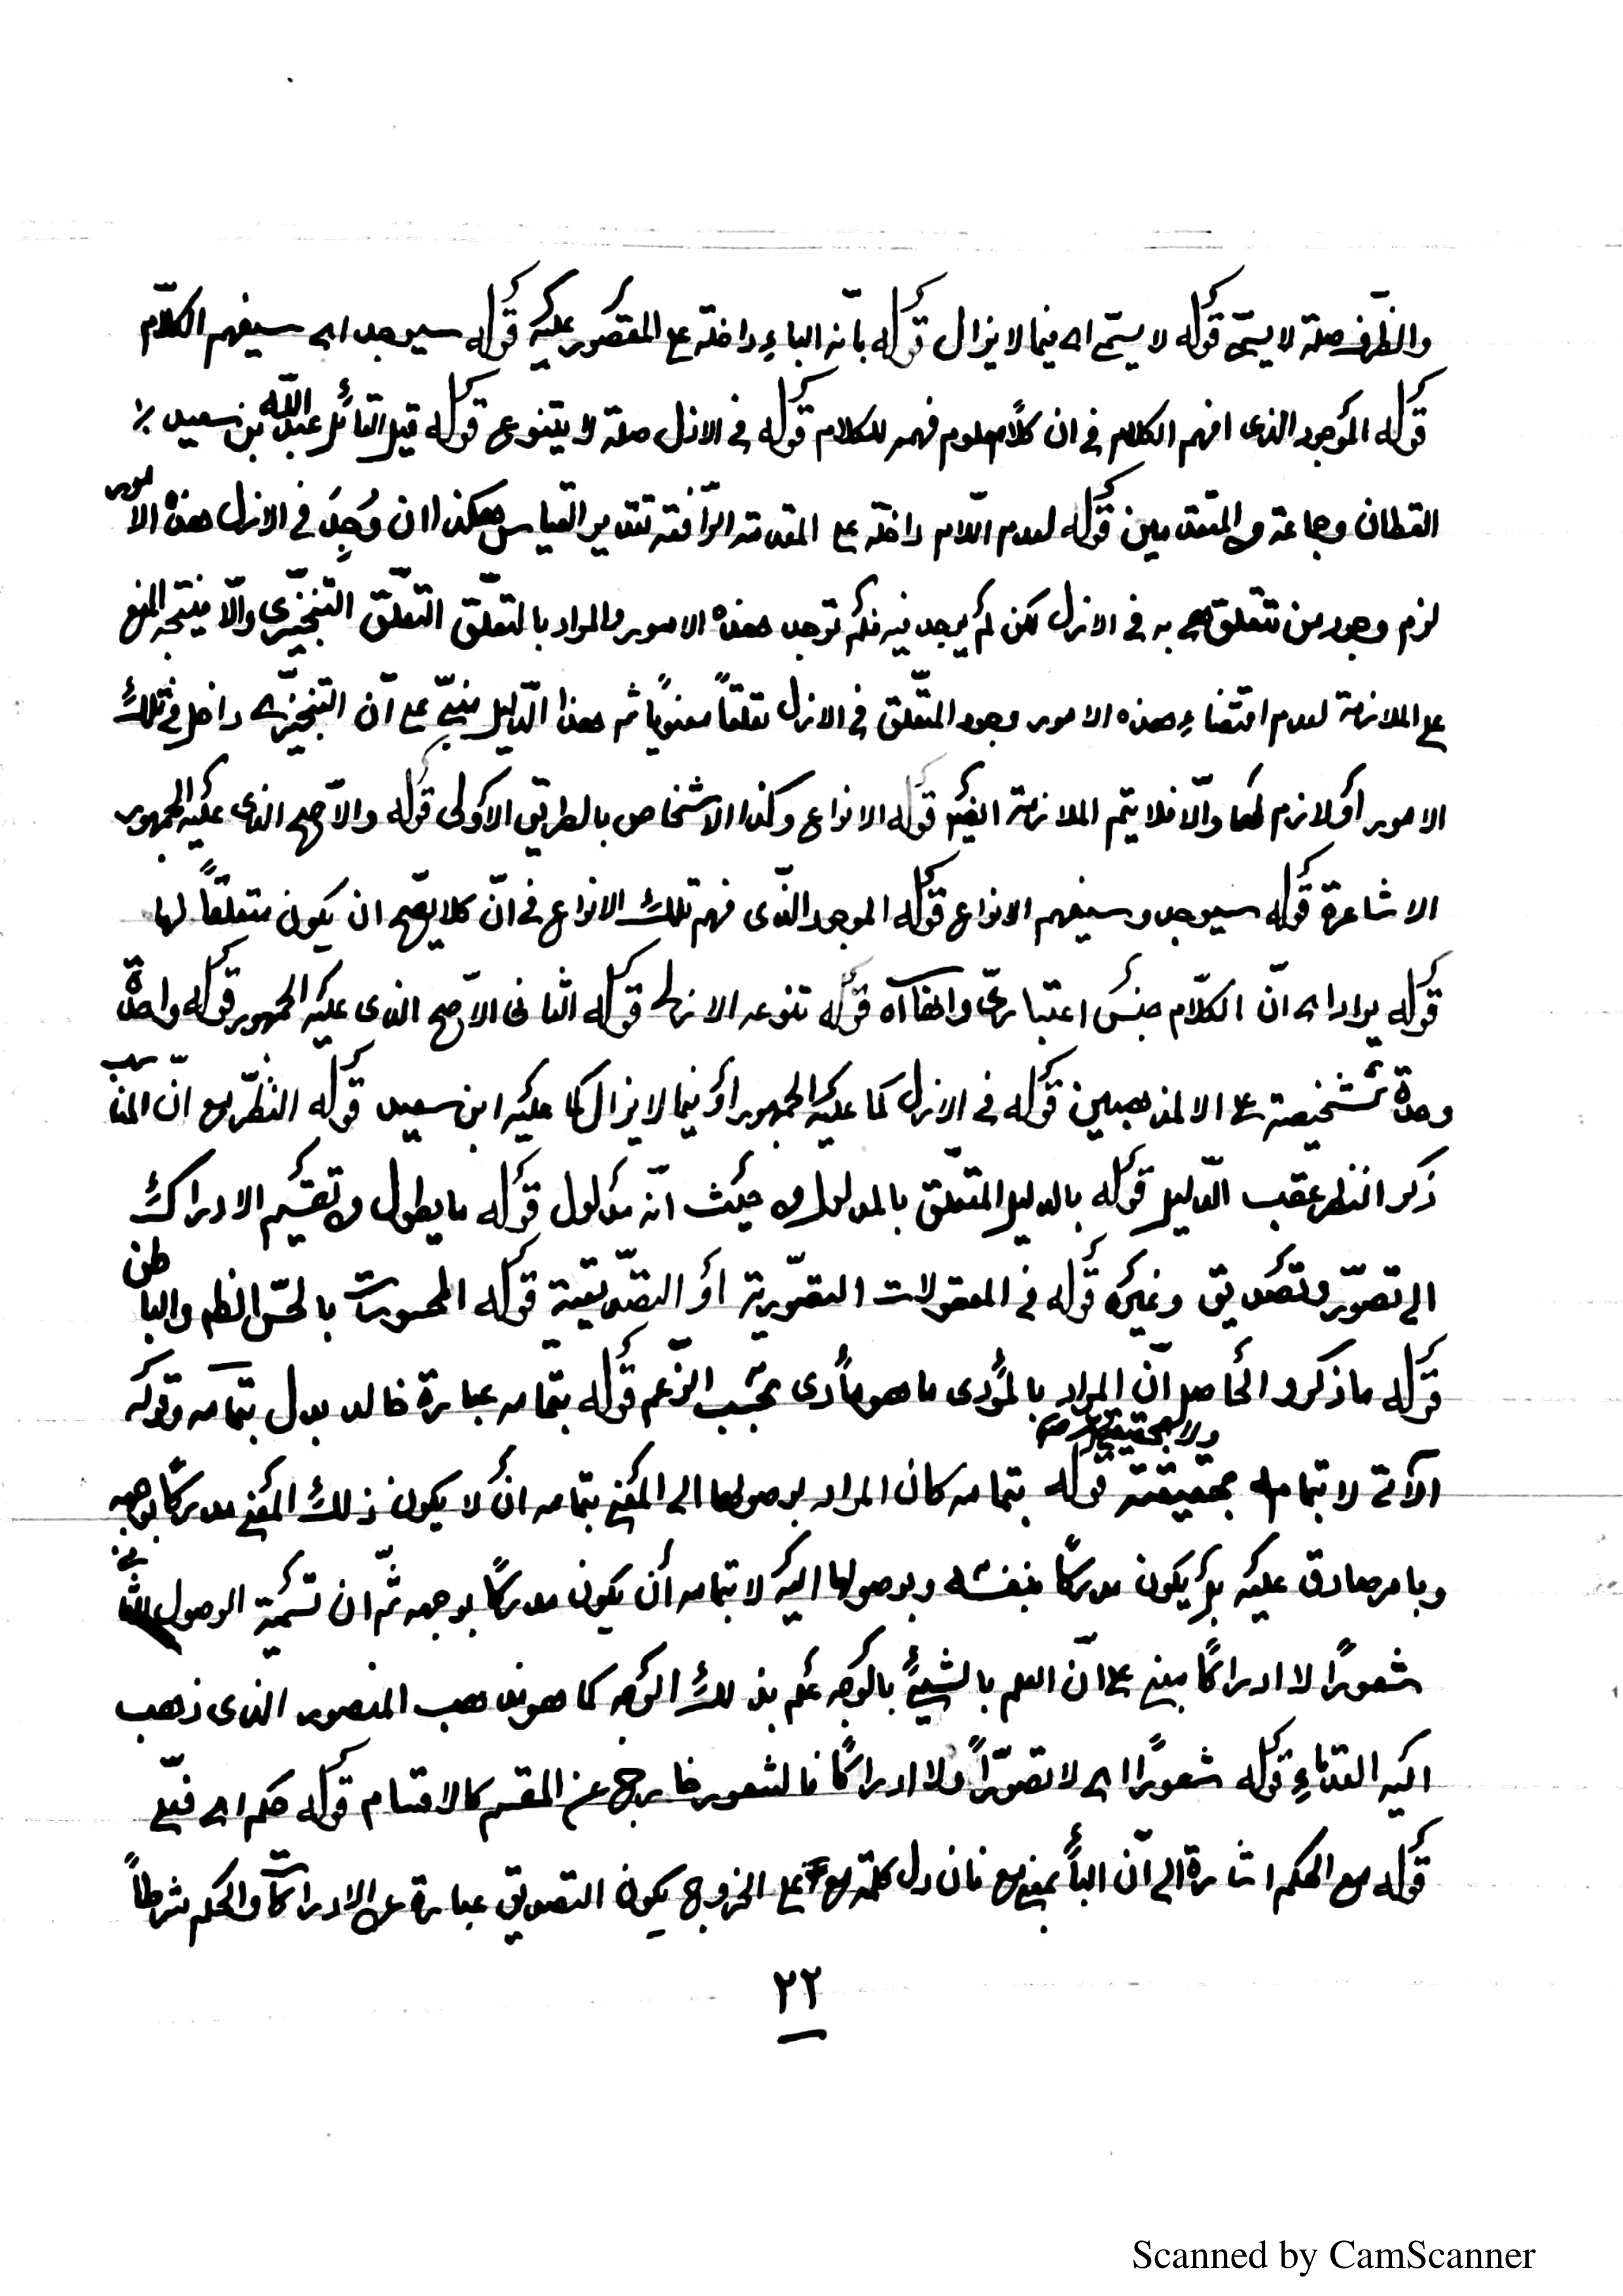 والظرف صلة لا يسمّى قوله لا يسمّى اى فيما لا يزال قوله بانّه الباء داخلة على المقصور عليه قوله سيوجد اى سيفهم الكلام
قوله الموجود الذى افهم الكلام فى ان كلا معلوم فهمه للكلام قوله فى الازل صلة لا يتنوع قوله قيل القائل عبد الله بن سعيد
القطان وجماعة من المتقدمين قوله لعدم اللّام داخلة على المقدمة الرّافعة تقدير القياس هكذا ان وُجِدَ فى الازل هذه الامور
لزم وجود من تتعلق هى به فى الازل لكن لم يوجد فيه فلم توجد هذه الامور والمراد بالتعلّق التعلّق التنجيزى والّا فيتجه المنع
على الملازمة لعدم اقتضاء هذه الامور وجود المتعلّق فى الازل تعلقاً معنوياً ثم هذا الدّليل مبنىّ على انّ التنجيزى داخل فى تلك
الامور او لازم لها والّا فلا يتم الملازمة ايضًا قوله الانواع وكذا الاشخاص بالطريق الاولى قوله والاصح الذى عليه الجمهور
الاشاعرة قوله سيوجد وسيفهم الانواع قوله الموجود الذى فهم تلك الانواع فى انّ كلا يصح ان يكون متعلقاً لها
قوله يراد اى انّ الكلام جنس اعتبارىّ قوله تنوعه الازلى قوله الثانى الاصح الذى عليه الجمهور قوله واحدة
وحدة شخصية على المذهبين قوله فى الازل كما عليه الجمهور او فيما لا يزال كما عليه ابن سعيد قوله النظر مع انّ المناسب
ذكر النظر عقب الدّليل قوله بالدليل المتعلّق بالمدلول من حيث انّه مدلول قوله ما يطول من تقسيم الادراك
الى تصوّر وتصديق وغيره قوله فى المعقولات التصوّرية او التصديقية قوله المحسوسات بالحسّ الظاهر والباطن
قوله ما ذكر والحاصل انّ المراد بالمؤدى ما هو مؤدى بحسب الزّعم قوله بتمامه عبارة خالد بدل بتمامه وقوله
الآتى لا بتمامه بحقيقته ولا بحقيقته قوله بتمامه كان المراد بوصولها الى المعنى بتمامه ان لا يكون ذلك المعنى مدركًا بوجهه
وبامر صادق عليه بل يكون مدركًا بنفسه وبوصولها اليه لا بتمامه أن يكون مدركًا بوجهه ثمّ ان تسمية الوصول الثانى
شعورًا لا ادراكًا مبنى على انّ العلم بالشيئ بالوجه علم بذلك الوجه كما هو مذهب المنصور الذى ذهب
اليه القدماء قوله شعورًا اى لا تصوّراً ولا ادراكًا فالشعور خارج عن المقسم كالاقسام قوله حكم اى
قوله مع الحكم اشارة الى انّ الباء بمعنى مع فان دل كلمة مع على الخروج يكون التصديق عبارة عن الادراكات والحكم شرطاً
٢٢
Scanned by CamScanner